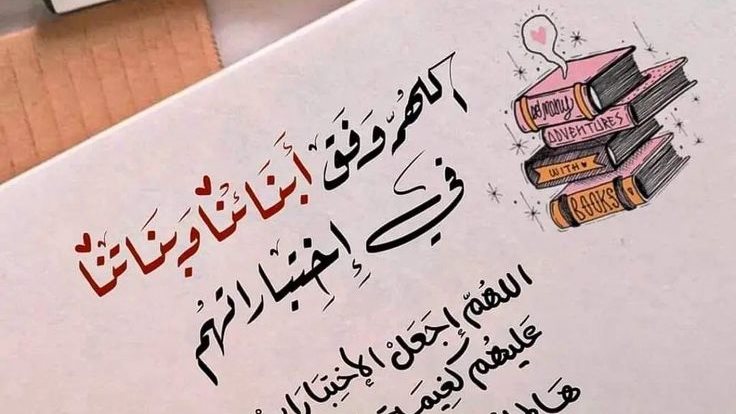 اللهُمّ وَفَق أَبنَائنَا وَبنَاتنَا
في إِختِبَاراتهُم
اللهُمّ إجعَل الإختِبَارَات
عَليهُم كَغيمَة
SO MANY
ADVENTURES
WITH
BOOKS